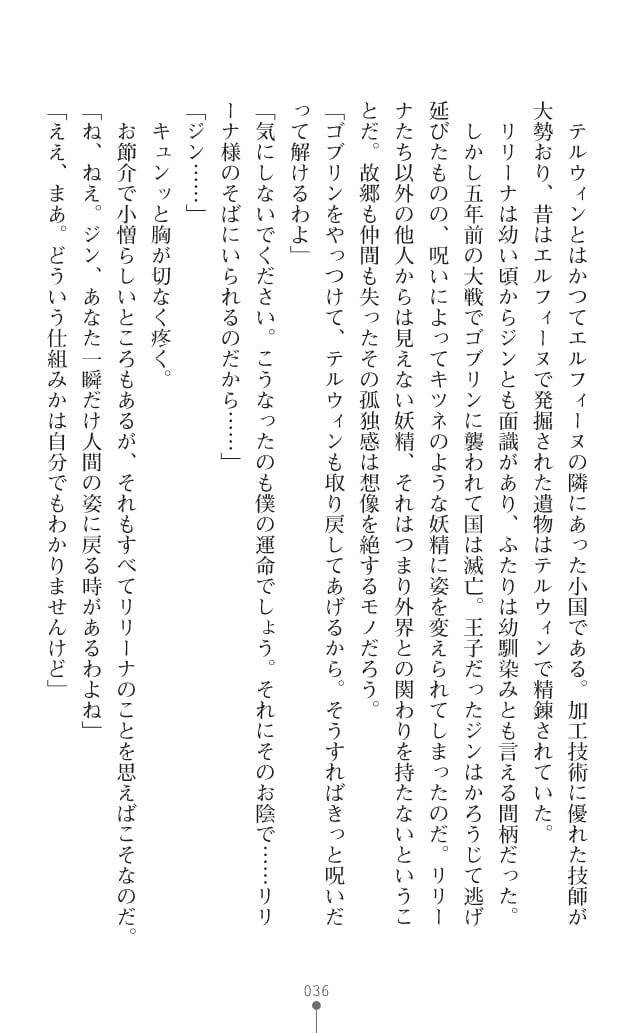 テルウィンとはかつてエルフィーヌの隣にあった小国である。加工技術に優れた技師が
大勢おり、昔はエルフィーヌで発掘された遺物はテルウィンで精錬されていた。
リリーナは幼い頃からジンとも面識があり、ふたりは幼馴染みとも言える間柄だった。
しかし五年前の大戦でゴブリンに襲われて国は滅亡。王子だったジンはかろうじて逃げ
延びたものの、呪いによってキツネのような妖精に姿を変えられてしまったのだ。リリー
ナたち以外の他人からは見えない妖精、それはつまり外界との関わりを持たないというこ
とだ。故郷も仲間も失ったその孤独感は想像を絶するモノだろう。
「ゴブリンをやっつけて、テルウィンも取り戻してあげるから。そうすればきっと呪いだ
って解けるわよ」
「気にしないでください。こうなったのも僕の運命でしょう。それにそのお陰で……リリ
ーナ様のそばにいられるのだから……」
「ジン……」
キュンッと胸が切なく疼く。
お節介で小憎らしいところもあるが、それもすべてリリーナのことを思えばこそなのだ。
「ね、ねえ。ジン、あなた一瞬だけ人間の姿に戻る時があるわよね」
「ええ、まあ。どういう仕組みかは自分でもわかりませんけど」
036